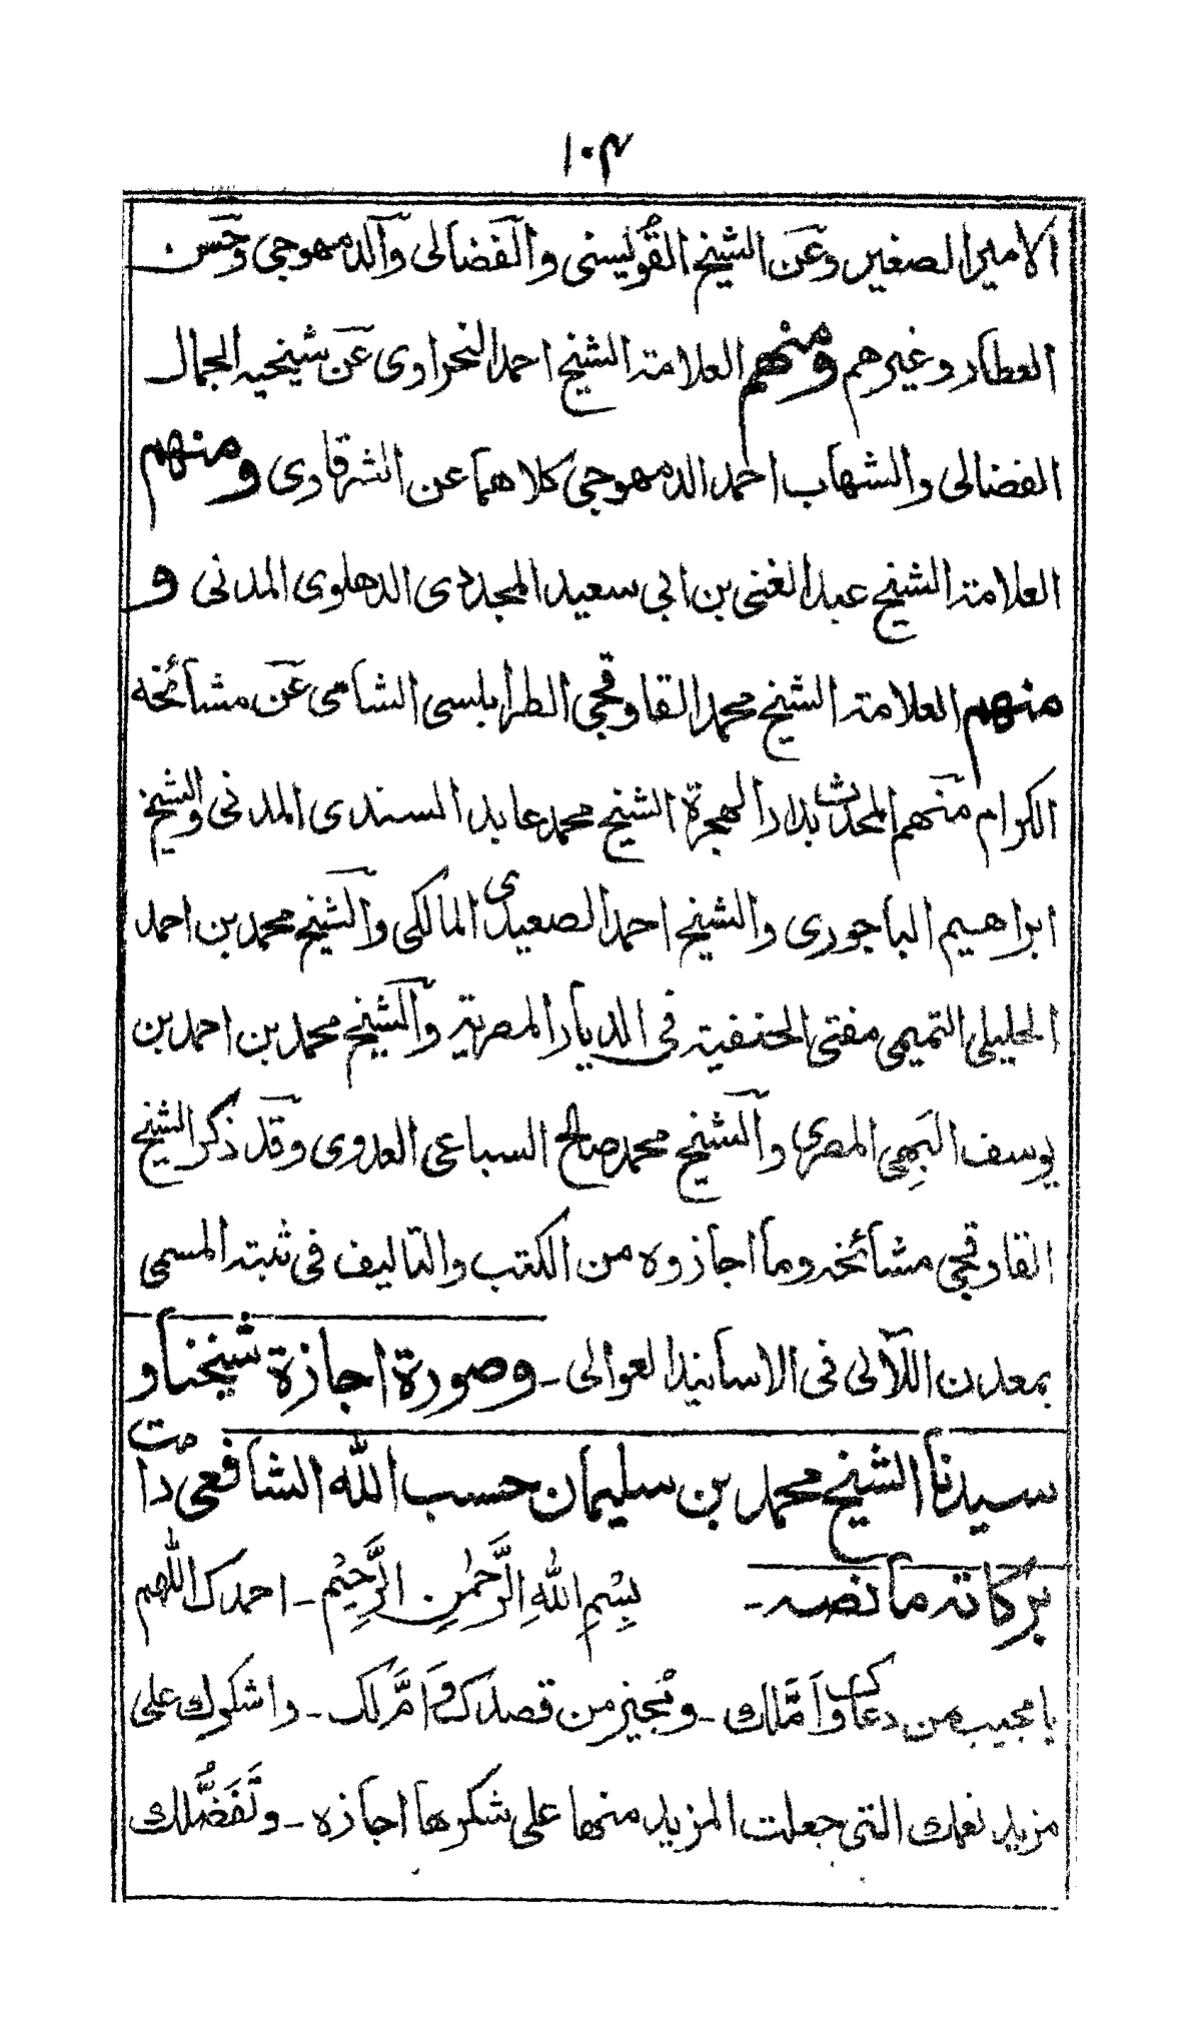 ١٠٣
الامير الصغير وعن الشيخ القُوَيسني والفضالى والدمهوجي وحسن
العطار وغيرهم ومنهم العلامة الشيخ احمد النحراوى عن شيخيه الجمال
الفضالى والشهاب احمد الدمهوجي كلاهما عن الشرقاوى ومنهم
العلامة الشيخ عبد الغنى بن ابي سعيد المجددى الدهلوى المدنى و
منهم العلامة الشيخ محمد القاوقجى الطرابلسى الشامى عن مشائخه
الكرام منهم المحدث بدار الهجرة الشيخ محمد عابد السندى المدنى والشيخ
ابراهيم الباجورى والشيخ احمد الصعيدى المالكى والشيخ محمد بن احمد
الخليلى التميمى مفتى الحنفية فى الديار المصرية والشيخ محمد بن احمد بن
يوسف البَهِى المصرى والشيخ محمد صالح السباعى العدوى وقد ذكر الشيخ
القاوقجى مشائخه وما اجازوه من الكتب والتاليف فى ثبته المسمى
بمعدن اللآلى فى الاسانيد العوالى - وصورة اجازة شيخنا و
سيدنا الشيخ محمد بن سليمان حسب الله الشافعى دامت
بركاته ما نصه - بِسْمِ اللهِ الرَّحْمٰنِ الرَّحِيْمِ - احمدك اللهم
يا مجيب من دعاك وَاَمَّلك - ومُجيز من قصدك وَاَمَّ لك - واشكرك على
مزيد نعمك التى جعلت المزيد منها على شكرها اجازه - وتَفَضُّلك